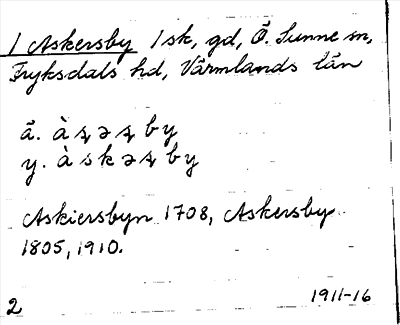 1 Askersby 1 sk, gd, Ö. Sunne sn,
Fryksdals hd, Värmlands län
ä. à ʂ ə ʂ b y
y. à s k ə ʂ b y
Askiersbyn 1708, Askersby
1805, 1910.
2 1911-16